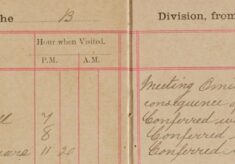 he B Division, from
Hour when Visited.
P.M. A.M.
Meeting Omi
consequence o
ll 7 Conferred w
8 Conferred
11 20 Conferred